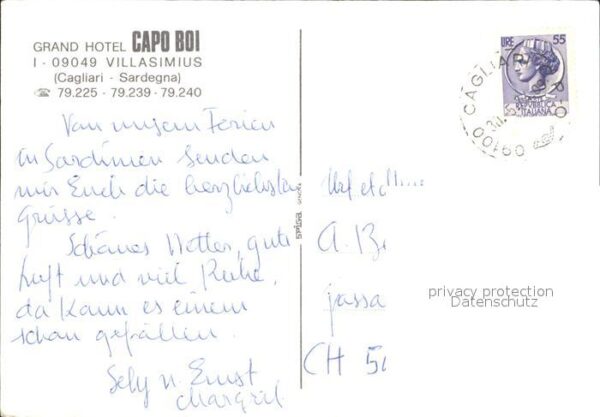 GRAND HOTEL CAPO BOI
I - 09049 VILLASIMIUS
(Cagliari - Sardegna)
☎ 79.225 - 79.239 - 79.240
Von unsern Ferien
in Sardinien senden
wir Euch die herzlichsten
Grüsse.
Schönes Wetter, gute
Luft und viel Ruhe,
da kann es einem
schon gefallen.
u. Ernst
LIRE 55
REPUBBLICA
ITALIANA
CAGLIARI
09100
A. B
privacy protection
Datenschutz
CH 5